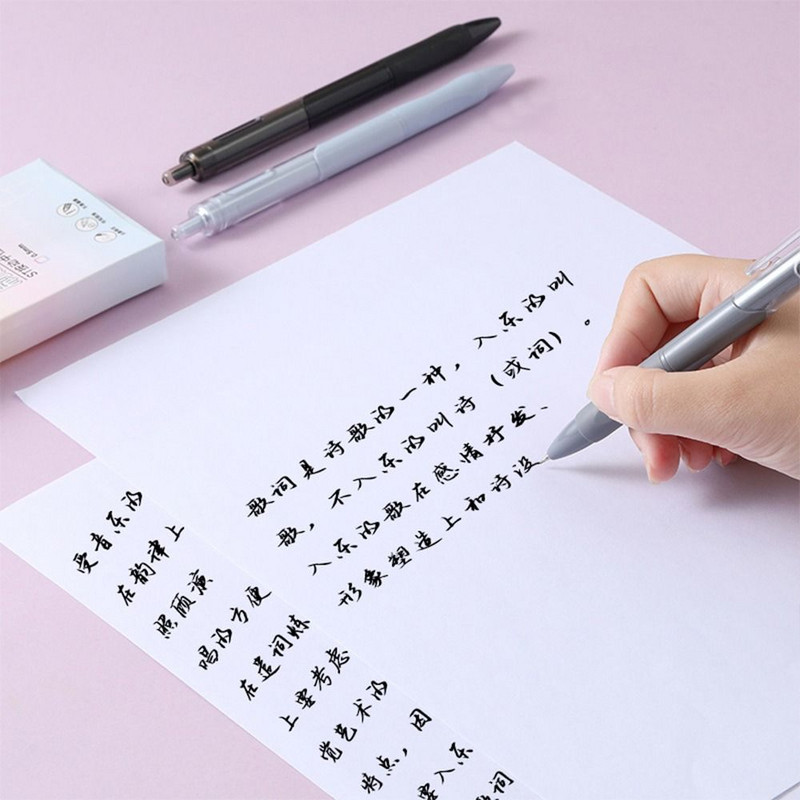 歌词是诗歌的一种，入乐的叫
歌，不入乐的叫诗（或词）。
入乐的歌在感情抒发、
形象塑造上和诗没
受音乐的
在韵律上
照顾演
唱的方便
在遣词炼
上要考虑
觉艺术的
特点，因
要入乐
歌词
0.5mm